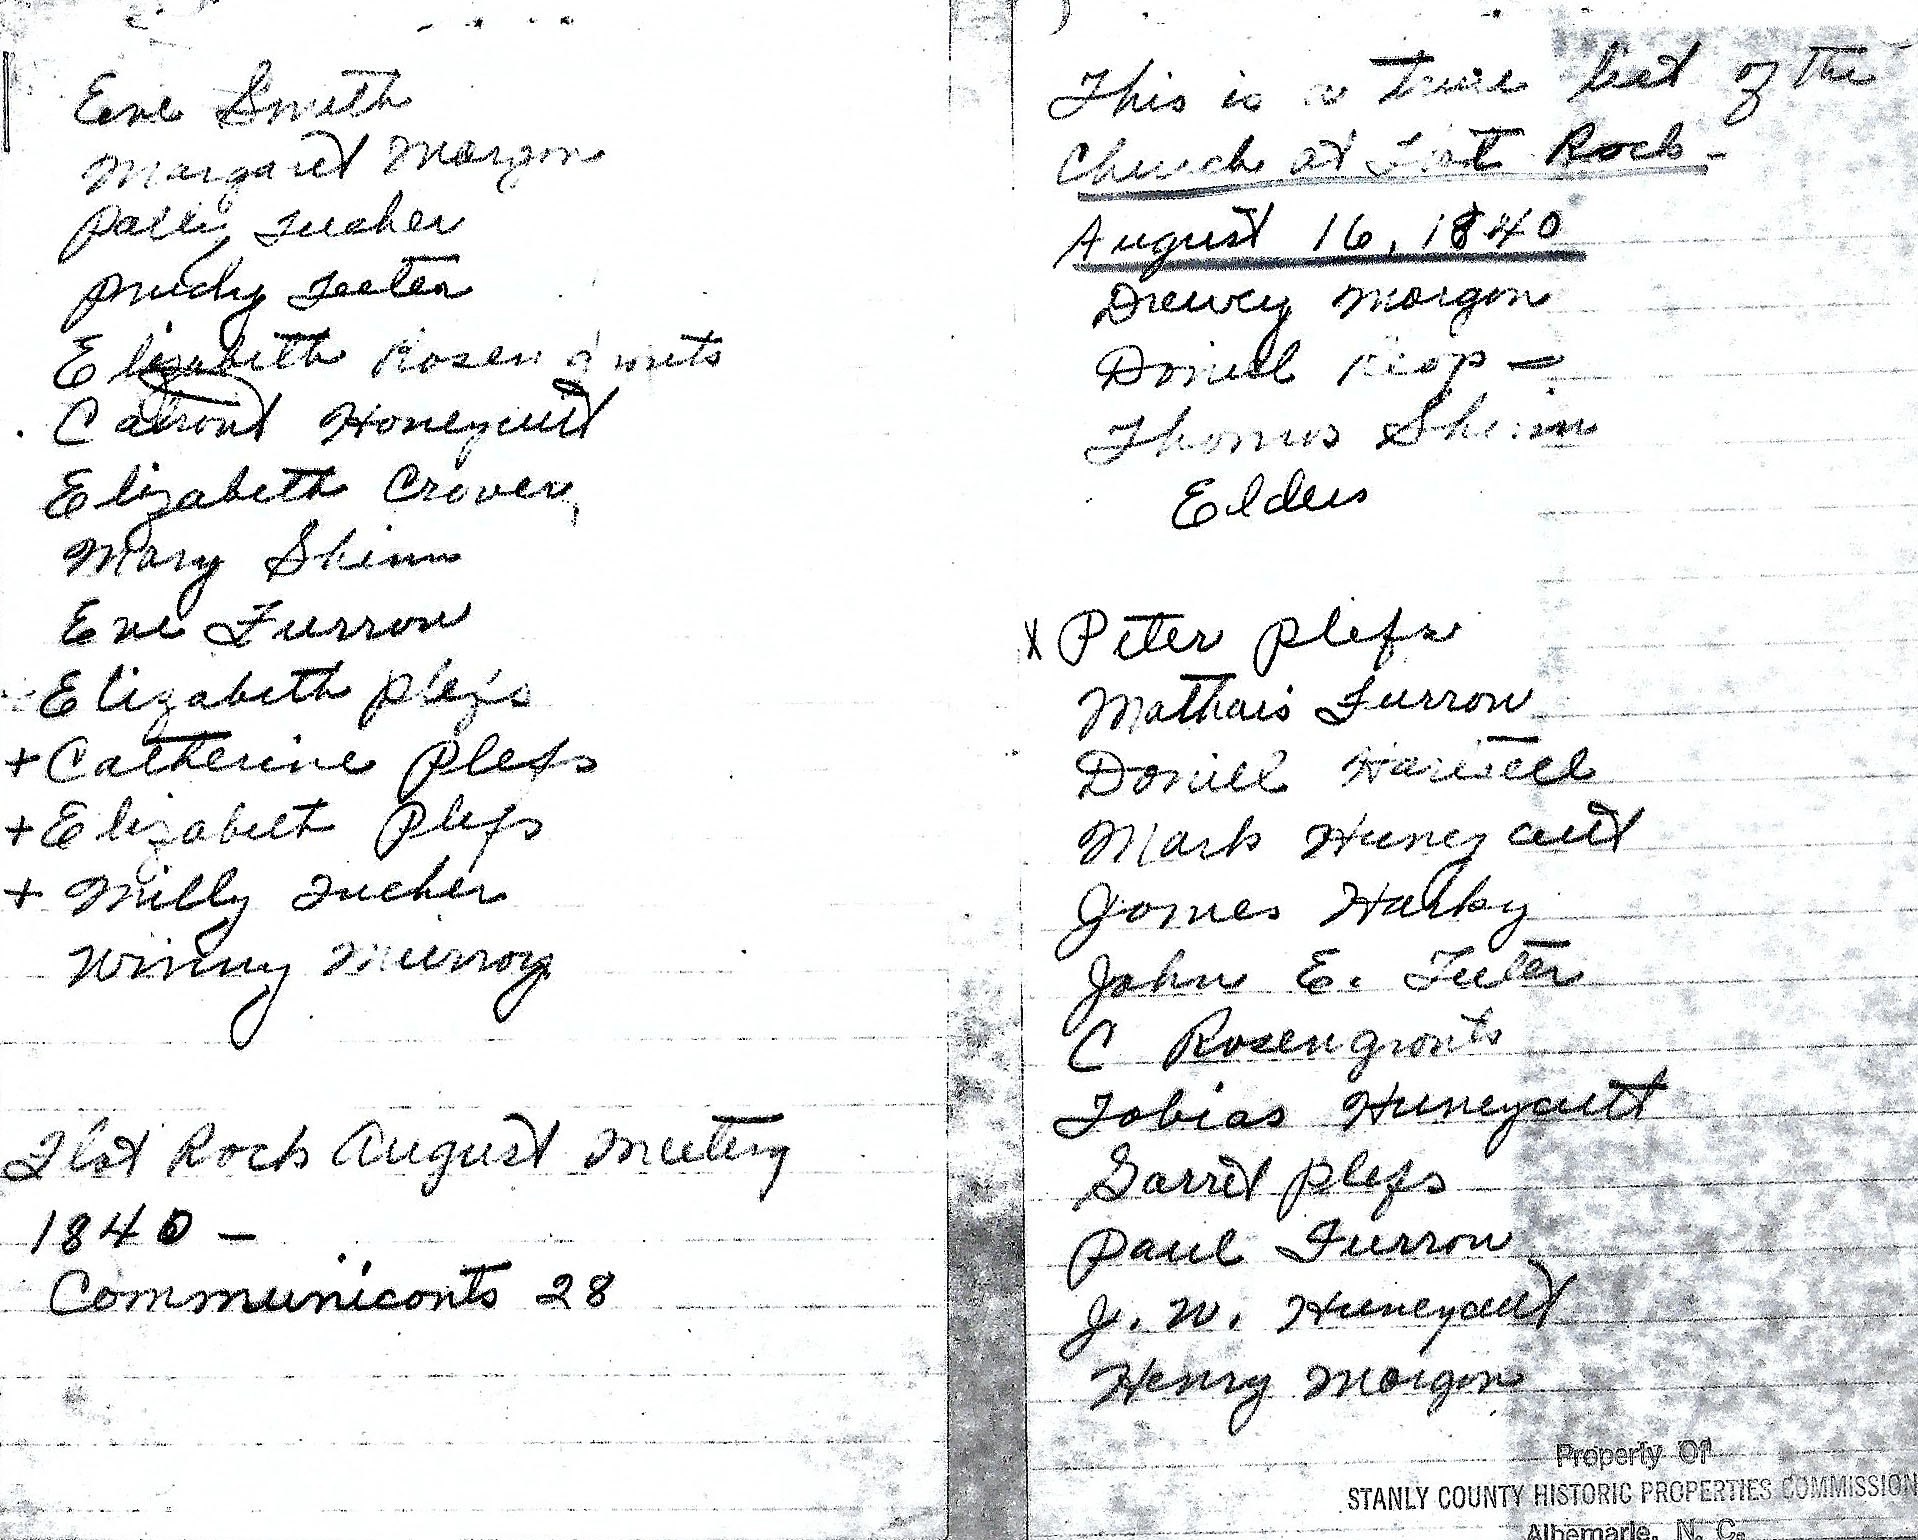 Eve Smith
Margaret Morgon
Polly Tucker
Prudy Teeter
Elizabeth Rosengronts
Honeycutt
Elizabeth Craven
Mary Shinn
Eve Furrow
Elizabeth Plefs
+ Catherine Plefs
+ Elizabeth Plefs
+ Milly Tucker
Winny Murroy
Flat Rock August Meeting
1840 —
Communiconts 28
This is a true list of the
Church at Flat Rock -
August 16, 1840
Drewey Morgon
Daniel Reap -
Thomas Shinn
Elders
X Peter Plefs
Mathais Furrow
Daniel
Mark Huneycutt
James Harky
John E. Teeter
C Rosengronts
Tobias Huneycutt
Garret Plefs
Paul Furrow
J. W. Huneycutt
Henry Morgon
Property Of
STANLY COUNTY HISTORIC PROPERTIES COMMISSION
Albemarle, N. C.